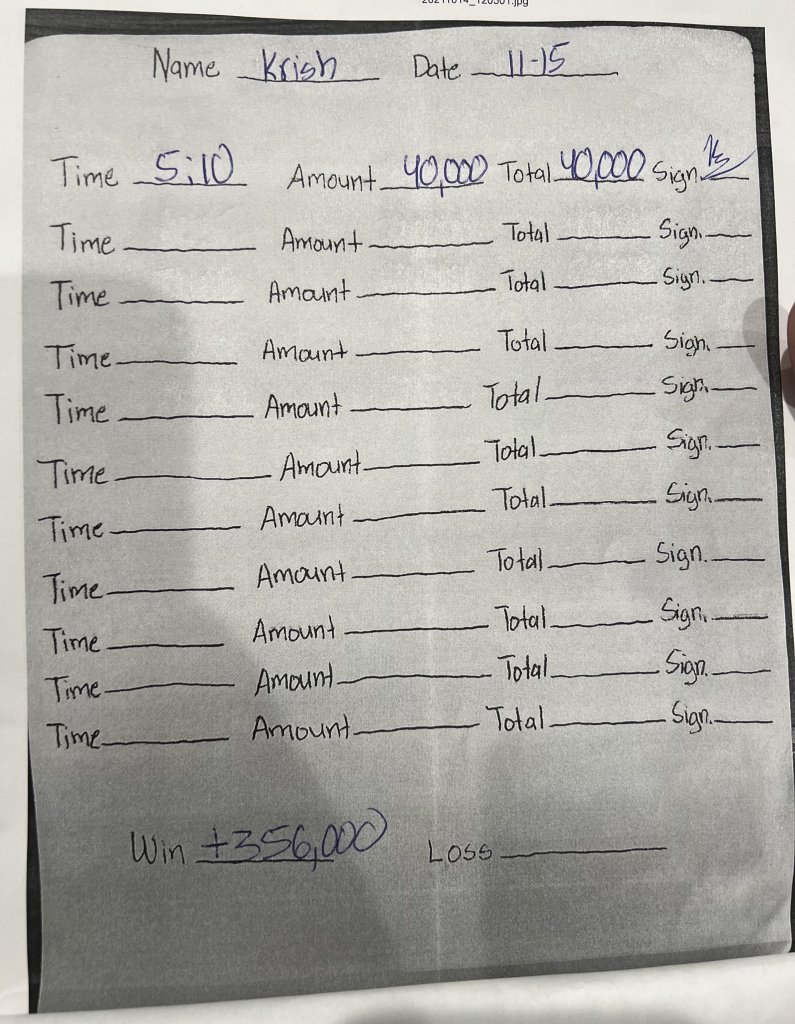 Name Krish Date 11-15
Time 5:10 Amount 40,000 Total 40,000 Sign.
Time Amount Total Sign.
Time Amount Total Sign.
Time Amount Total Sign.
Time Amount Total Sign.
Time Amount Total Sign.
Time Amount Total Sign.
Time Amount Total Sign.
Time Amount Total Sign.
Time Amount Total Sign.
Time Amount Total Sign.
Win +356,000 Loss